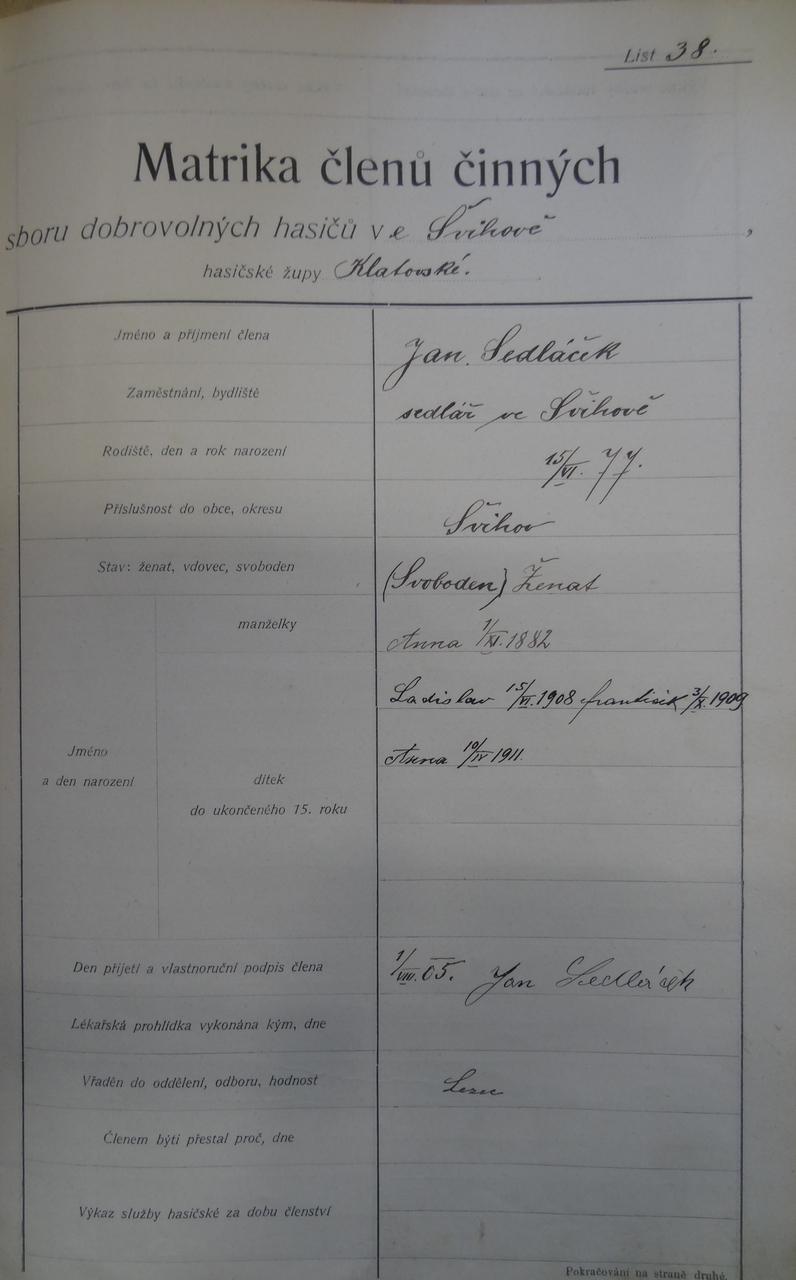 List 38.
Matrika členů činných
sboru dobrovolných hasičů ve Švihově,
hasičské župy Klatovské.
Jméno a příjmení člena Jan Sedláček
Zaměstnání, bydliště sedlář ve Švihově
Rodiště, den a rok narození 15/VI. 77.
Příslušnost do obce, okresu Švihov
Stav: ženat, vdovec, svoboden (Svoboden) Ženat
manželky Anna 1/XI. 1882
Ladislav 15/VI. 1908 František 3/X. 1909
Anna 10/IV 1911.
Jméno
a den narození
dítek
do ukončeného 15. roku
Den přijetí a vlastnoruční podpis člena 1/VIII. 05. Jan Sedláček
Lékařská prohlídka vykonána kým, dne
Vřaděn do oddělení, odboru, hodnost Lezec
Členem býti přestal proč, dne
Výkaz služby hasičské za dobu členství
Pokračování na straně druhé.